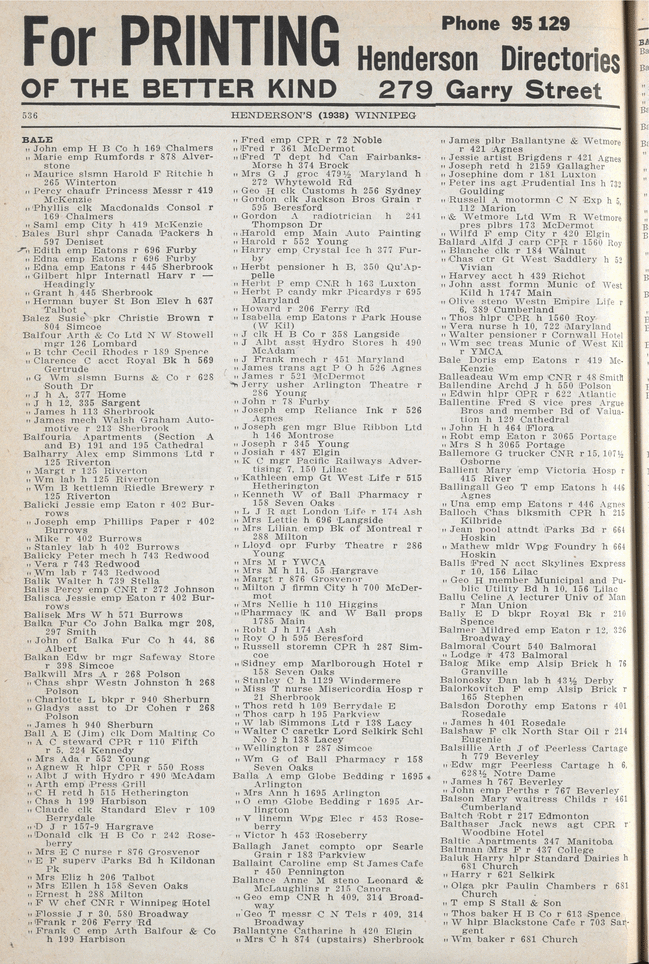 For PRINTING
OF THE BETTER KIND
Phone 95 129
Henderson Directories
279 Garry Street
536
HENDERSON'S (1938) WINNIPEG
BALE
„ John emp H B Co h 169 Chalmers
„ Marie emp Rumfords r 878 Alver-
stone
„ Maurice slsmn Harold F Ritchie h
265 Winterton
„ Percy chaufr Princess Messr r 419
McKenzie
„ Phyllis clk Macdonalds Consol r
169 Chalmers
„ Saml emp City h 419 McKenzie
Bales Burl shpr Canada Packers h
597 Deniset
„ Edith emp Eatons r 696 Furby
„ Edna emp Eatons r 696 Furby
„ Edna emp Eatons r 445 Sherbrook
„ Gilbert hlpr Internatl Harv r —
Headingly
„ Grant h 445 Sherbrook
„ Herman buyer St Bon Elev h 637
Talbot
Balez Susie pkr Christie Brown r
804 Simcoe
Balfour Arth & Co Ltd N W Stowell
mgr 126 Lombard
„ B tchr Cecil Rhodes r 189 Spence
„ Clarence C acct Royal Bk h 569
Gertrude
„ G Wm slsmn Burns & Co r 628
South Dr
„ J h A, 377 Home
„ J h 12, 335 Sargent
„ James h 113 Sherbrook
„ James mech Walsh Graham Auto-
motive r 213 Sherbrook
Balfouria Apartments (Section A
and B) 191 and 195 Cathedral
Balharry Alex emp Simmons Ltd r
125 Riverton
„ Margt r 125 Riverton
„ Wm lab h 125 Riverton
„ Wm B kettlemn Riedle Brewery r
125 Riverton
Balicki Jessie emp Eaton r 402 Bur-
rows
„ Joseph emp Phillips Paper r 402
Burrows
„ Mike r 402 Burrows
„ Stanley lab h 402 Burrows
Balicky Peter mech h 743 Redwood
„ Vera r 743 Redwood
„ Wm lab r 743 Redwood
Balik Walter h 739 Stella
Balis Percy emp CNR r 272 Johnson
Balisca Jessie emp Eaton r 402 Bur-
rows
Balisek Mrs W h 571 Burrows
Balka Fur Co John Balka mgr 208,
297 Smith
„ John of Balka Fur Co h 44, 86
Albert
Balkan Edw br mgr Safeway Store
r 398 Simcoe
Balkwill Mrs A r 268 Polson
„ Chas shpr Westn Johnston h 268
Polson
„ Charlotte L bkpr r 940 Sherburn
„ Gladys asst to Dr Cohen r 268
Polson
„ James h 940 Sherburn
Ball A E (Jim) clk Dom Malting Co
„ A C steward CPR r 110 Fifth
r 5, 224 Kennedy
„ Mrs Ada r 552 Young
„ Agnew R hlpr CPR r 550 Ross
„ Albt J with Hydro r 490 McAdam
„ Arth emp Press Grill
„ C H retd h 515 Hetherington
„ Chas h 199 Harbison
„ Claude clk Standard Elev r 109
Berrydale
„ D J r 157-9 Hargrave
„ Donald clk H B Co r 242 Rose-
berry
„ Mrs E C nurse r 876 Grosvenor
„ E F superv Parks Bd h Kildonan
Pk
„ Mrs Eliz h 206 Talbot
„ Mrs Ellen h 158 Seven Oaks
„ Ernest h 288 Milton
„ F W chef CNR r Winnipeg Hotel
„ Flossie J r 30, 580 Broadway
„ Frank r 206 Ferry Rd
„ Frank C emp Arth Balfour & Co
h 199 Harbison
„ Fred emp CPR r 72 Noble
„ Fred r 361 McDermot
„ Fred T dept hd Can Fairbanks-
Morse h 374 Brock
„ Mrs G J groc 479½ Maryland h
272 Whytewold Rd
„ Geo H clk Customs h 256 Sydney
„ Gordon clk Jackson Bros Grain r
595 Beresford
„ Gordon A radiotrician h 241
Thompson Dr
„ Harold emp Main Auto Painting
„ Harold r 552 Young
„ Harry emp Crystal Ice h 377 Fur-
by
„ Herbt pensioner h B, 350 Qu'Ap-
pelle
„ Herbt P emp CNR h 163 Luxton
„ Herbt P candy mkr Picardys r 695
Maryland
„ Howard r 206 Ferry Rd
„ Isabella emp Eatons r Park House
(W Kil)
„ J clk H B Co r 358 Langside
„ J Albt asst Hydro Stores h 490
McAdam
„ J Frank mech r 451 Maryland
„ James trans agt P O h 526 Agnes
„ James r 521 McDermot
„ Jerry usher Arlington Theatre r
286 Young
„ John r 78 Furby
„ Joseph emp Reliance Ink r 526
Agnes
„ Joseph gen mgr Blue Ribbon Ltd
h 146 Montrose
„ Joseph r 345 Young
„ Josiah r 487 Elgin
„ K C mgr Pacific Railways Adver-
tising 7, 150 Lilac
„ Kathleen emp Gt West Life r 515
Hetherington
„ Kenneth W of Ball Pharmacy r
158 Seven Oaks
„ L J R agt London Life r 174 Ash
„ Mrs Lettie h 696 Langside
„ Mrs Lilian emp Bk of Montreal r
288 Milton
„ Lloyd opr Furby Theatre r 286
Young
„ Mrs M r YWCA
„ Mrs M h 11, 55 Hargrave
„ Margt r 876 Grosvenor
„ Milton J firmn City h 700 McDer-
mot
„ Mrs Nellie h 110 Higgins
„ Pharmacy K and W Ball props
1785 Main
„ Robt J h 174 Ash
„ Roy O h 595 Beresford
„ Russell storemn CPR h 287 Sim-
coe
„ Sidney emp Marlborough Hotel r
158 Seven Oaks
„ Stanley C h 1129 Windermere
„ Miss T nurse Misericordia Hosp r
21 Sherbrook
„ Thos retd h 109 Berrydale E
„ Thos carp h 195 Parkview
„ W lab Simmons Ltd r 138 Lacy
„ Walter C caretkr Lord Selkirk Schl
No 2 h 138 Lacey
„ Wellington r 287 Simcoe
„ Wm G of Ball Pharmacy r 158
Seven Oaks
Balla A emp Globe Bedding r 1695
Arlington
„ Mrs Ann h 1695 Arlington
„ O emp Globe Bedding r 1695 Ar-
lington
„ V linemn Wpg Elec r 453 Rose-
berry
„ Victor h 453 Roseberry
Ballagh Janet compto opr Searle
Grain r 183 Parkview
Ballaint Caroline emp St James Cafe
r 450 Pennington
Ballance Anne M steno Leonard &
McLaughlins r 215 Canora
„ Geo emp CNR h 409, 314 Broad-
way
„ Geo T messr C N Tels r 409, 314
Broadway
Ballantyne Catharine h 420 Elgin
„ Mrs C h 874 (upstairs) Sherbrook
„ James plbr Ballantyne & Wetmore
r 421 Agnes
„ Jessie artist Brigdens r 421 Agnes
„ Joseph retd h 2159 Gallagher
„ Josephine dom r 181 Luxton
„ Peter ins agt Prudential Ins h 732
Goulding
„ Russell A motormn C N Exp h 5,
112 Marion
„ & Wetmore Ltd Wm R Wetmore
pres plbrs 173 McDermot
„ Wilfd F emp City r 420 Elgin
Ballard Alfd J carp CPR r 1560 Roy
„ Blanche clk r 184 Walnut
„ Chas ctr Gt West Saddlery h 52
Vivian
„ Harvey acct h 439 Richot
„ John asst formn Munic of West
Kild h 1747 Main
„ Olive steno Westn Empire Life r
6, 389 Cumberland
„ Thos hlpr CPR h 1560 Roy
„ Vera nurse h 10, 722 Maryland
„ Walter pensioner r Cornwall Hotel
„ Wm sec treas Munic of West Kil
r YMCA
Bale Doris emp Eatons r 419 Mc-
Kenzie
Balleadeau Wm emp CNR r 48 Smith
Ballendine Archd J h 550 Polson
„ Edwin hlpr CPR r 622 Atlantic
Ballentine Fred S vice pres Argue
Bros and member Bd of Valua-
tion h 129 Cathedral
„ John H h 464 Flora
„ Robt emp Eaton r 3065 Portage
„ Mrs S h 3065 Portage
Ballemore G trucker CNR r 15, 107½
Osborne
Ballient Mary emp Victoria Hosp r
415 River
Ballingall Geo T emp Eatons h 446
Agnes
„ Una emp emp Eatons r 446 Agnes
Balloch Chas blksmith CPR h 215
Kilbride
„ Jean pool attndt Parks Bd r 664
Hoskin
„ Mathew mldr Wpg Foundry h 664
Hoskin
Balls Fred N acct Skylines Express
r 10, 156 Lilac
„ Geo H member Municipal and Pu-
blic Utility Bd h 10, 156 Lilac
Ballu Celine A lecturer Univ of Man
r Man Union
Bally E D bkpr Royal Bk r 210
Spence
Balmer Mildred emp Eaton r 12, 326
Broadway
Balmoral Court 540 Balmoral
„ Lodge r 473 Balmoral
Balog Mike emp Alsip Brick h 76
Granville
Balonosky Dan lab h 43½ Derby
Balorkovitch F emp Alsip Brick r
165 Stephen
Balsdon Dorothy emp Eatons r 401
Rosedale
„ James h 401 Rosedale
Balshaw F clk North Star Oil r 214
Eugenie
Balsillie Arth J of Peerless Cartage
h 779 Beverley
„ Edw mgr Peerless Cartage h 6,
628½ Notre Dame
„ James h 767 Beverley
„ John emp Perths r 767 Beverley
Balson Mary waitress Childs r 461
Cumberland
Baltch Robt r 217 Edmonton
Balthaser Jack news agt CPR r
Woodbine Hotel
Baltic Apartments 347 Manitoba
Baltman Mrs F r 437 College
Baluk Harry hlpr Standard Dairies h
681 Church
„ Harry r 621 Selkirk
„ Olga pkr Paulin Chambers r 681
Church
„ T emp S Stall & Son
„ Thos baker H B Co r 613 Spence
„ W hlpr Blackstone Cafe r 703 Sar-
gent
„ Wm baker r 681 Church